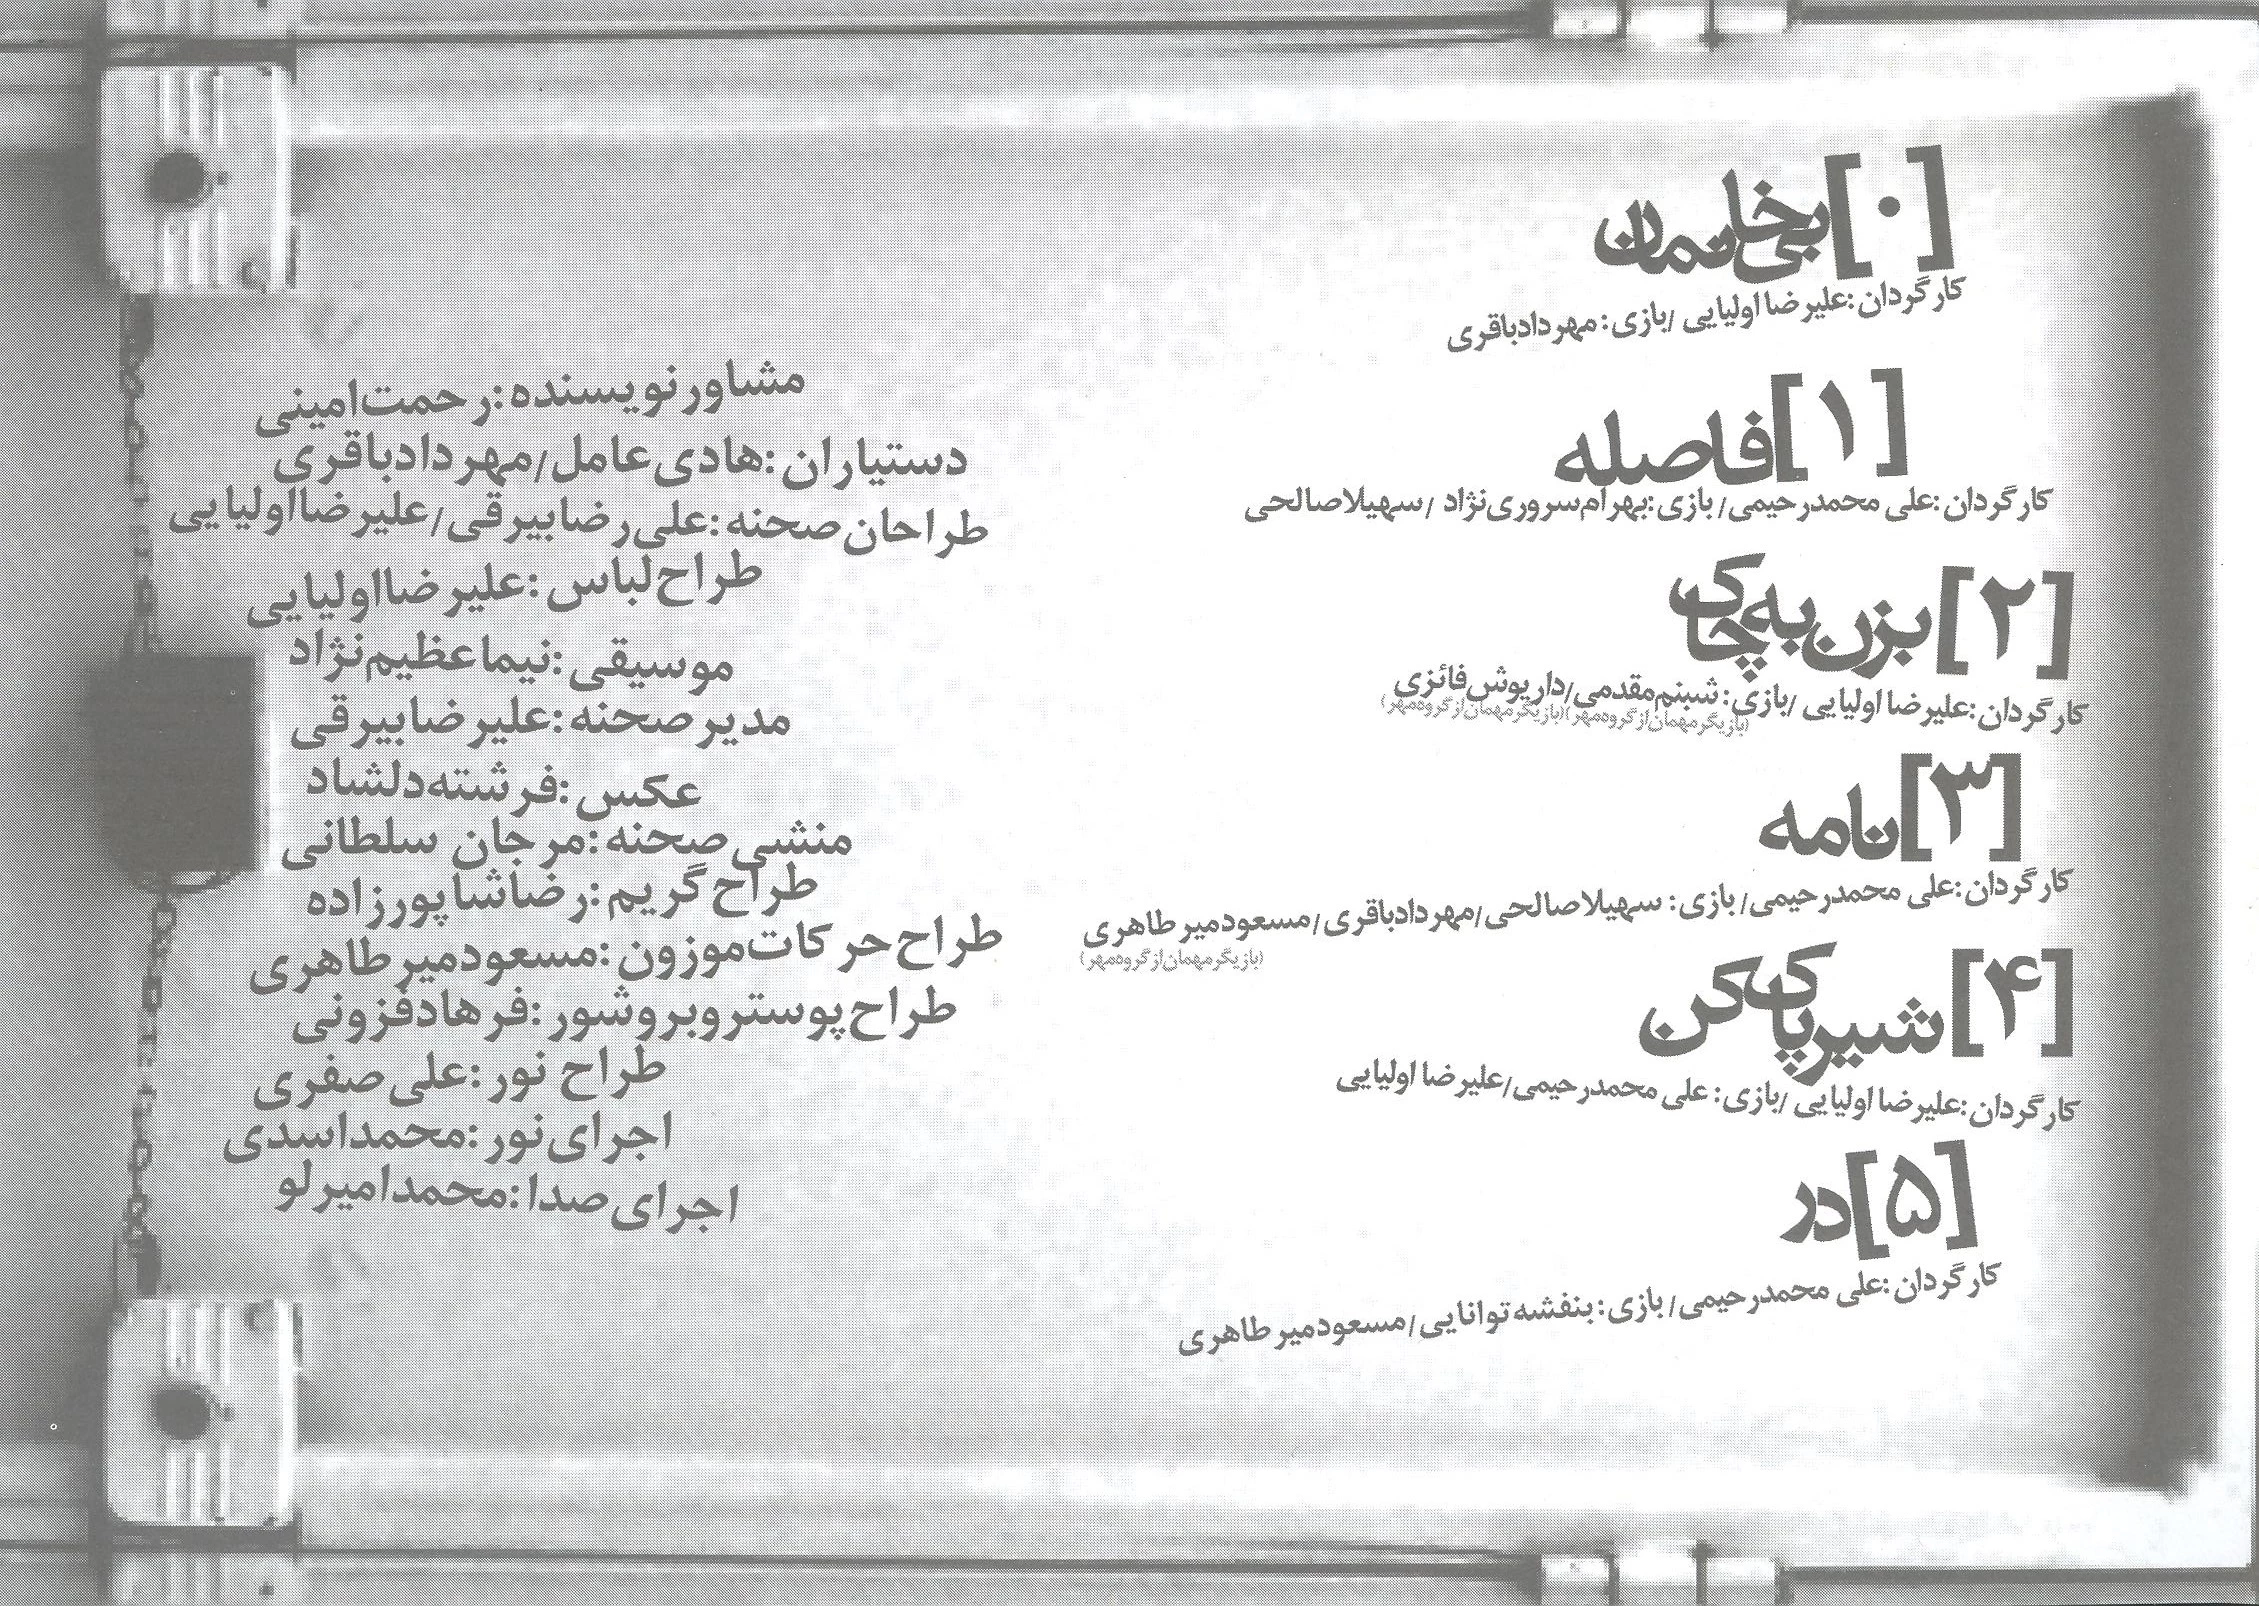 [۰] بی‌خانمان
کارگردان: علیرضا اولیایی / بازی: مهرداد باقری
[۱] فاصله
کارگردان: علی محمدرحیمی / بازی: بهرام سروری‌نژاد / سهیلا صالحی
[۲] بزن به چاک
کارگردان: علیرضا اولیایی / بازی: شبنم مقدمی / داریوش فائزی
(بازیگر مهمان از گروه مهر) (بازیگر مهمان از گروه مهر)
[۳] نامه
کارگردان: علی محمدرحیمی / بازی: سهیلا صالحی / مهرداد باقری / مسعود میرطاهری
(بازیگر مهمان از گروه مهر)
[۴] شیر پاک کن
کارگردان: علیرضا اولیایی / بازی: علی محمدرحیمی / علیرضا اولیایی
[۵] در
کارگردان: علی محمدرحیمی / بازی: بنفشه توانایی / مسعود میرطاهری
مشاور نویسنده: رحمت امینی
دستیاران: هادی عامل / مهرداد باقری
طراحان صحنه: علی‌رضا بیرقی / علیرضا اولیایی
طراح لباس: علیرضا اولیایی
موسیقی: نیما عظیم‌نژاد
مدیر صحنه: علیرضا بیرقی
عکس: فرشته دلشاد
منشی صحنه: مرجان سلطانی
طراح گریم: رضا شاپورزاده
طراح حرکات موزون: مسعود میرطاهری
طراح پوستر و بروشور: فرهاد فزونی
طراح نور: علی صفری
اجرای نور: محمد اسدی
اجرای صدا: محمد امیرلو